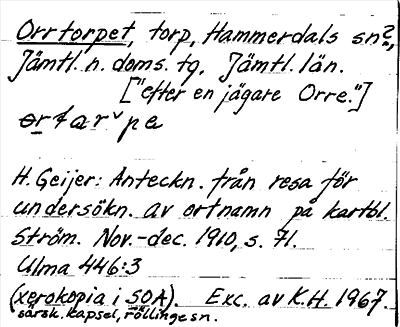 Orrtorpet, torp, Hammerdals sn?,
Jämtl. n. doms. tg. Jämtl. län.
["efter en jägare Orre."]
H. Geijer: Anteckn. från resa för
undersökn. av ortnamn på kartbl.
Ström. Nov.-dec. 1910, s. 71.
Ulma 446:3
(xerokopia i SOA). Exc. av K.H. 1967.
särsk. kapsel, röllingesn.